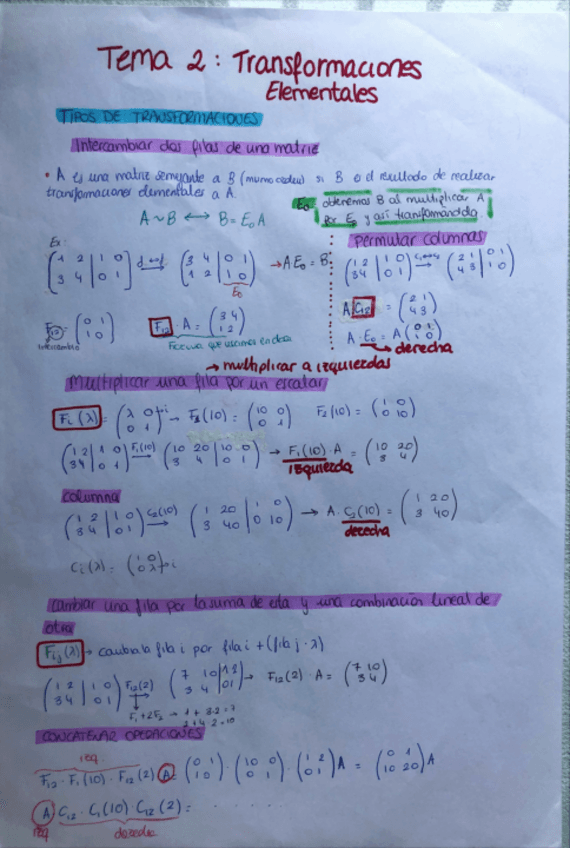 Tema 2: Transformaciones
Elementales
TIPOS DE TRANSFORMACIONES
Intercambiar dos filas de una matriz
• A es una matriz semejante a B (mismo orden) si B es el resultado de realizar
transformaciones elementales a A.
E₀ obtenemos B al multiplicar A
por E₀ y así transformándola.
A ~ B ⟷ B = E₀ A
Permutar columnas
Ex:
(1 2 | 1 0
3 4 | 0 1) → (3 4 | 0 1
1 2 | 1 0) → A E₀ = B
E₀
(1 2 | 1 0
3 4 | 0 1) → (2 1 | 0 1
4 3 | 1 0)
F₁₂ = (0 1
1 0)
intercambio
F₁₂ · A = (3 4
1 2)
A C₁₂ = (2 1
4 3)
A · E₀ = A (0 1
1 0)
derecha
→ multiplicar a izquierdas
Multiplicar una fila por un escalar
Fᵢ(λ) = (λ 0
0 1) → F₁(10) = (10 0
0 1) F₂(10) = (1 0
0 10)
(1 2 | 1 0
3 4 | 0 1) F₁(10) → (10 20 | 10 0
3 4 | 0 1) → F₁(10) · A = (10 20
3 4)
izquierda
columna
(1 2 | 1 0
3 4 | 0 1) C₂(10) → (1 20 | 1 0
3 40 | 0 10) → A · C₂(10) = (1 20
3 40)
derecha
Cᵢ(λ) = (1 0
0 λ) → i
Cambiar una fila por la suma de esta y una combinación lineal de
otra
Fᵢⱼ(λ) → cambia la fila i por fila i + (fila j · λ)
(1 2 | 1 0
3 4 | 0 1) F₁₂(2) → (7 10 | 1 2
3 4 | 0 1) → F₁₂(2) · A = (7 10
3 4)
F₁ + 2F₂ → 1 + 3·2 = 7
2 + 4·2 = 10
CONCATENAR OPERACIONES
izq
F₁₂ · F₁(10) · F₁₂(2) A = (0 1
1 0) · (10 0
0 1) · (1 2
0 1) A = (0 1
10 20) A
A C₁₂ · C₁(10) · C₁₂(2) = . . . . . .
izq derecha